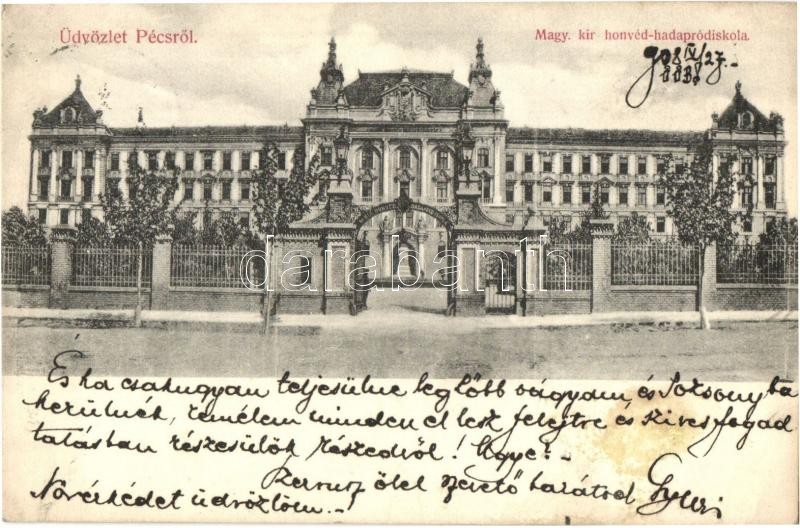 Üdvözlet Pécsről.
Magy. kir honvéd-hadapródiskola.
908 IV/27.
darabanth
És ha csakugyan teljesülne legfőbb vágyam, és Pozsonyba
kerülnék, remélem minden el lesz felejtve és szives fogad
tatásban részesülök részedről! Ugye? -
Szervusz ölel szerető barátod Gyuri
Nővérkédet üdvözlöm. - !